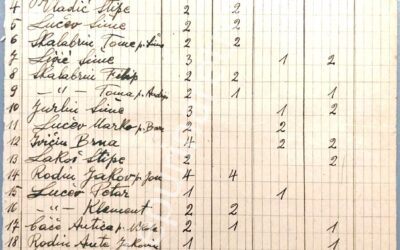 4 Vladić Stipe 2 2
5 Lučev Šime 2 2
6 Skalabrin Tome p. Šime 2 2
7 Šime 3 1 2
8 Skalabrin Filip 2 2
9 -"- Toma p. Andrije 2 1 1
10 Jurlin Šime 3 1 2
11 Lučev Marko p. Bare 2 2
12 Ivičin Brna 4 2 2
13 Lakoš Stipe 2 2
14 Rodin Jakov p. Jose 4 4
15 Lucev Petar 1 1
16 -"- Klement 2 2
17 Ćaćo Antica p. 2 1 1
18 Rodin Aneta Jakova 1 1